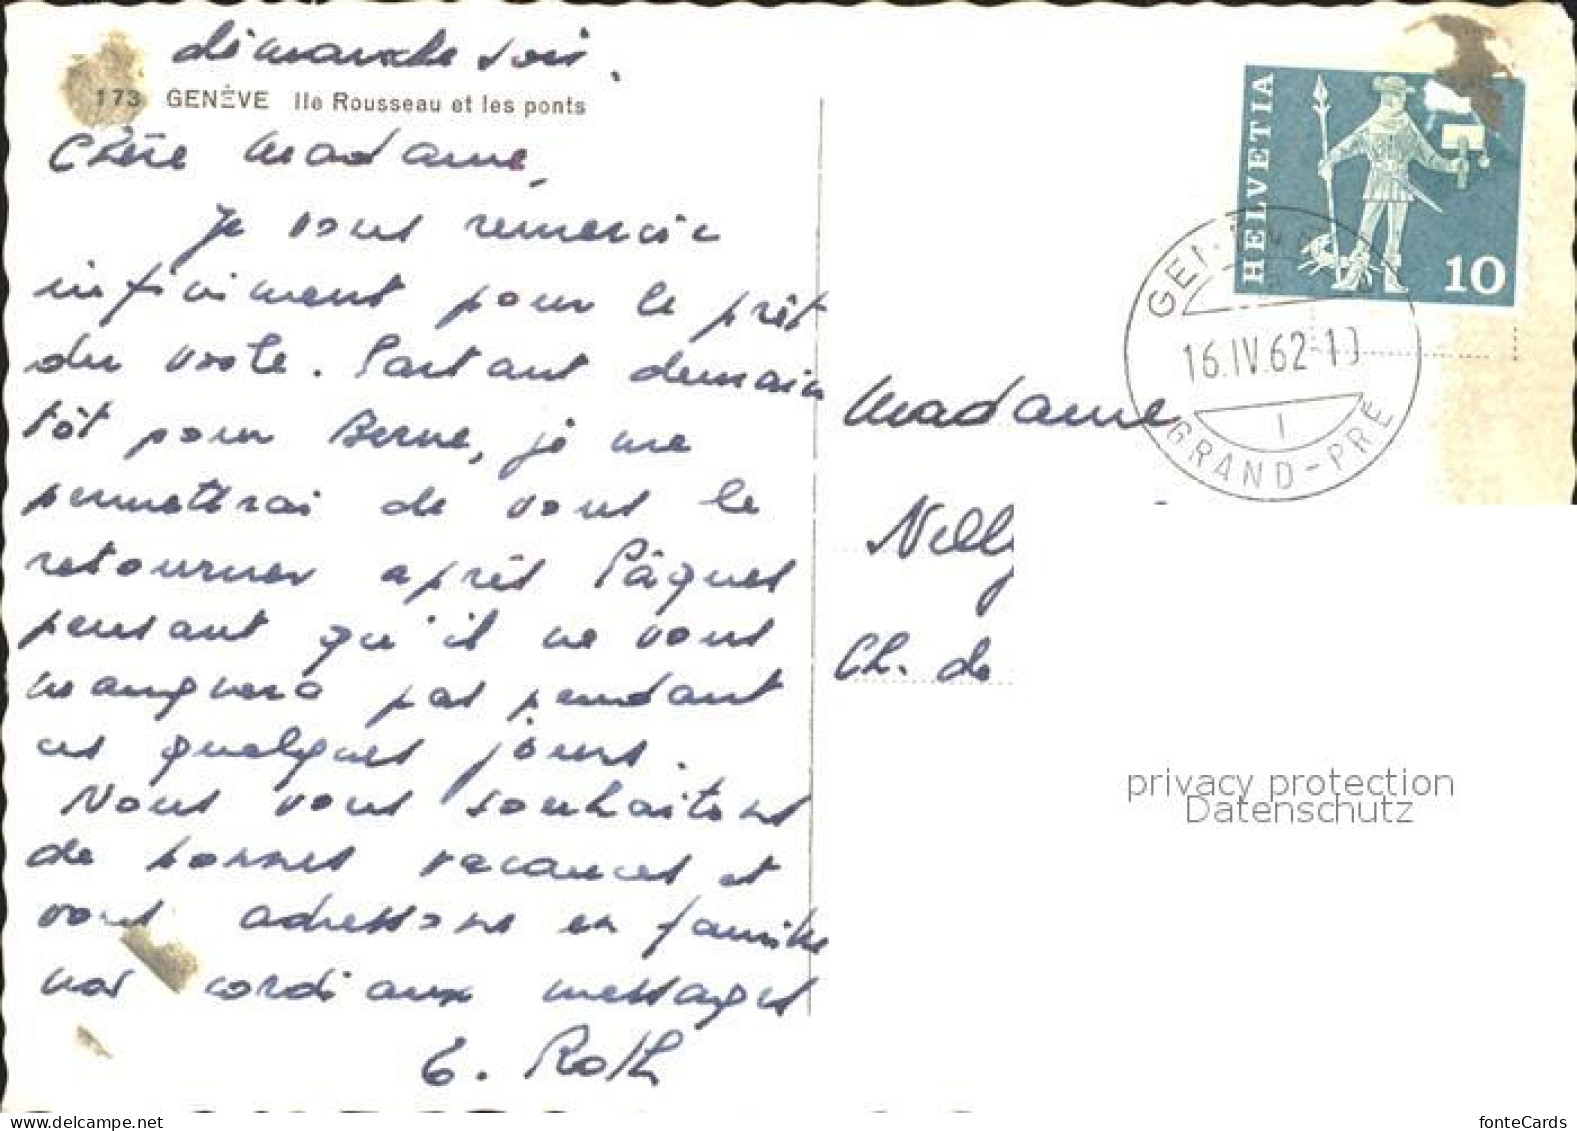 dimanche soir.
173 GENÈVE Ile Rousseau et les ponts
Chère Madame,
Je vous remercie
infiniment pour le prêt
du voile. Partant demain
tôt pour Berne, je me
permettrai de vous le
retourner après Pâques
pensant qu'il ne vous
manquera pas pendant
ces quelques jours.
Nous vous souhaitons
de bonnes vacances et
vous adressons en famille
nos cordiaux messages
E. Roth
HELVETIA
10
16.IV.62-10
1
GRAND-PRÉ
Madame
Nelly
Ch. de
privacy protection
Datenschutz
www.delcampe.net
fonteCards